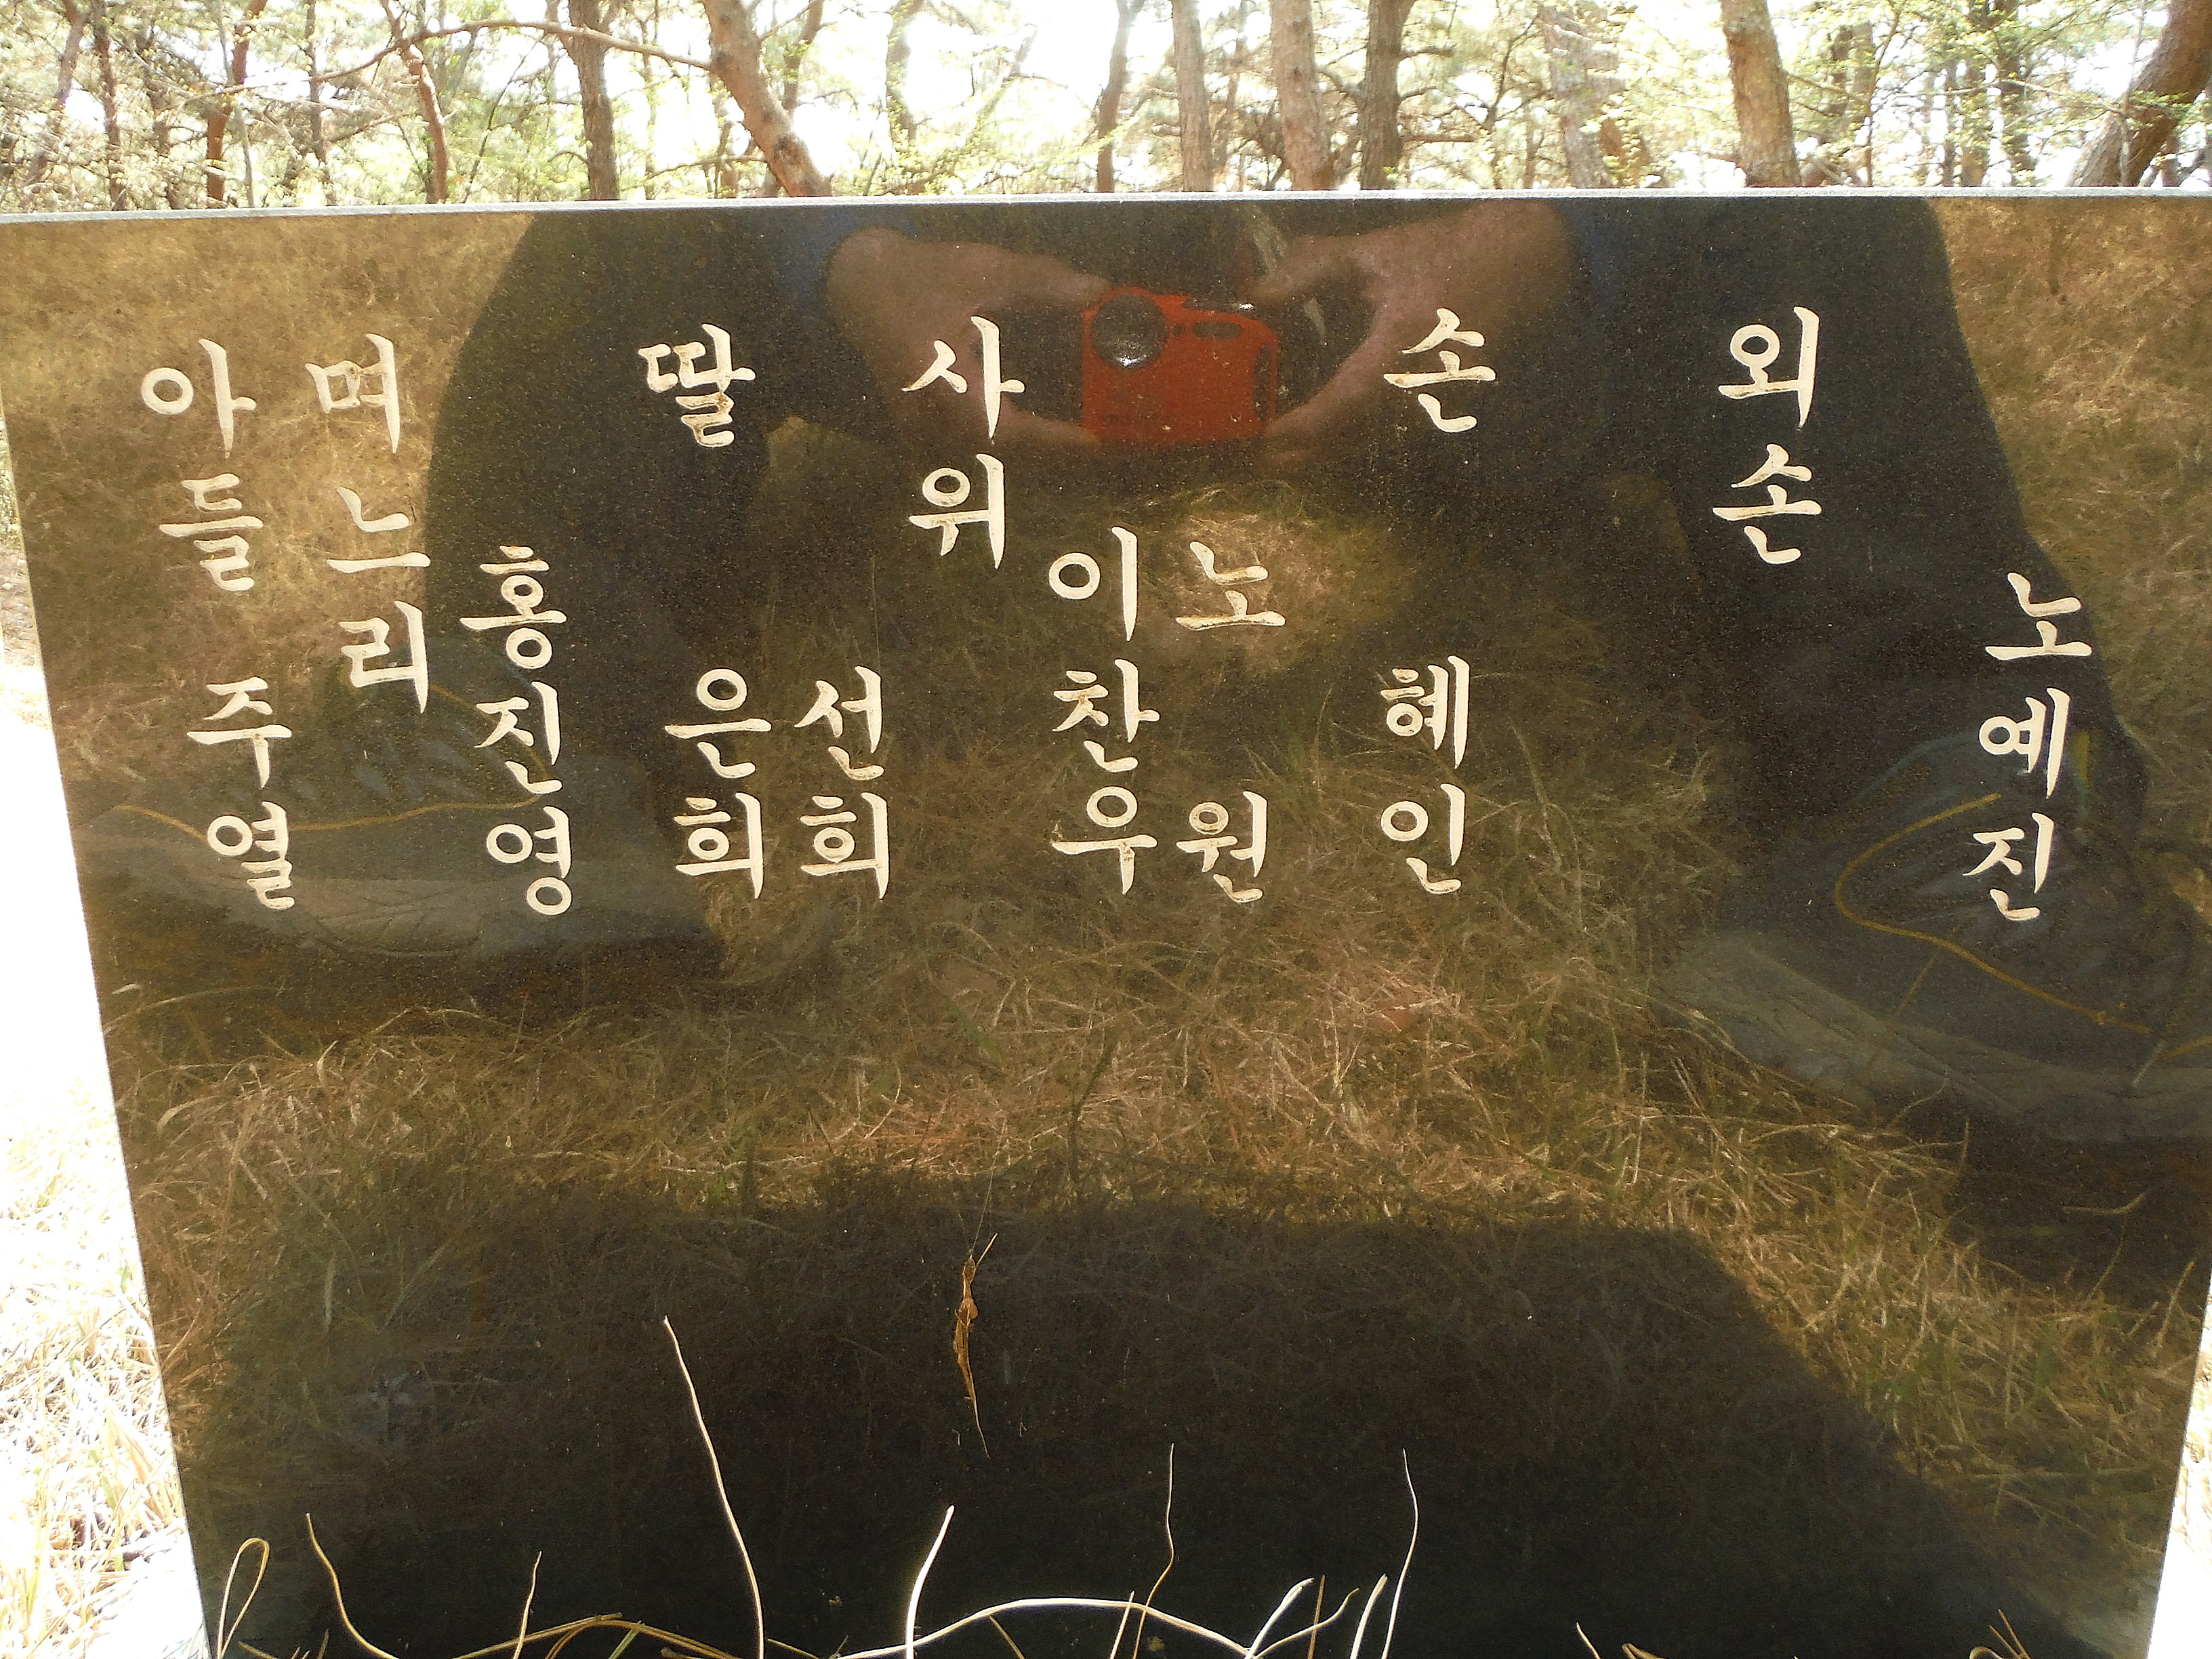 아들 주열
며느리 홍진영
딸 은희
선희
사위 이찬우
노원
손 혜인
외손 노예진